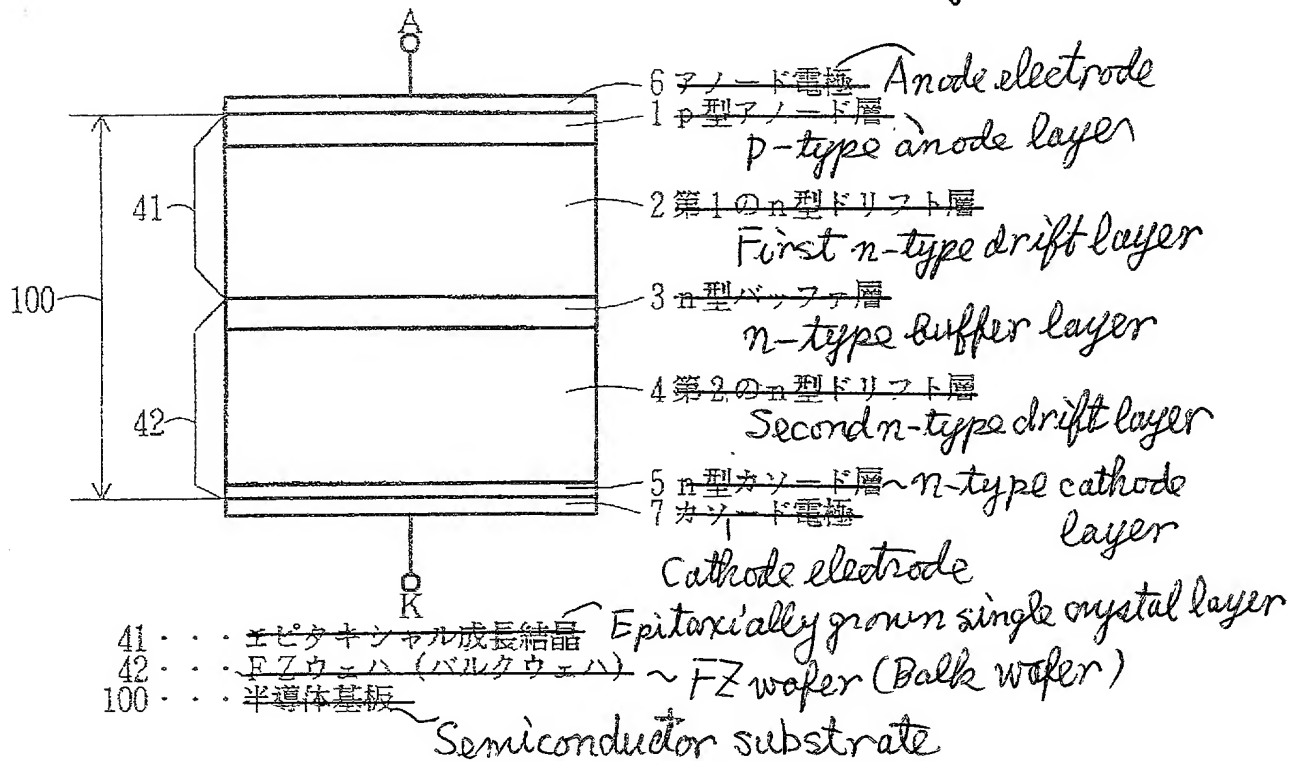 A
6 アノード電極 Anode electrode
1 p型アノード層
p-type anode layer
41
2 第1のn型ドリフト層
First n-type drift layer
100
3 n型バッファ層
n-type buffer layer
42
4 第2のn型ドリフト層
Second n-type drift layer
5 n型カソード層 ~ n-type cathode
layer
7 カソード電極
Cathode electrode
K
41・・・エピタキシャル成長結晶 Epitaxially grown single crystal layer
42・・・FZウェハ(バルクウェハ) ~ FZ wafer (Balk wafer)
100・・・半導体基板
Semiconductor substrate